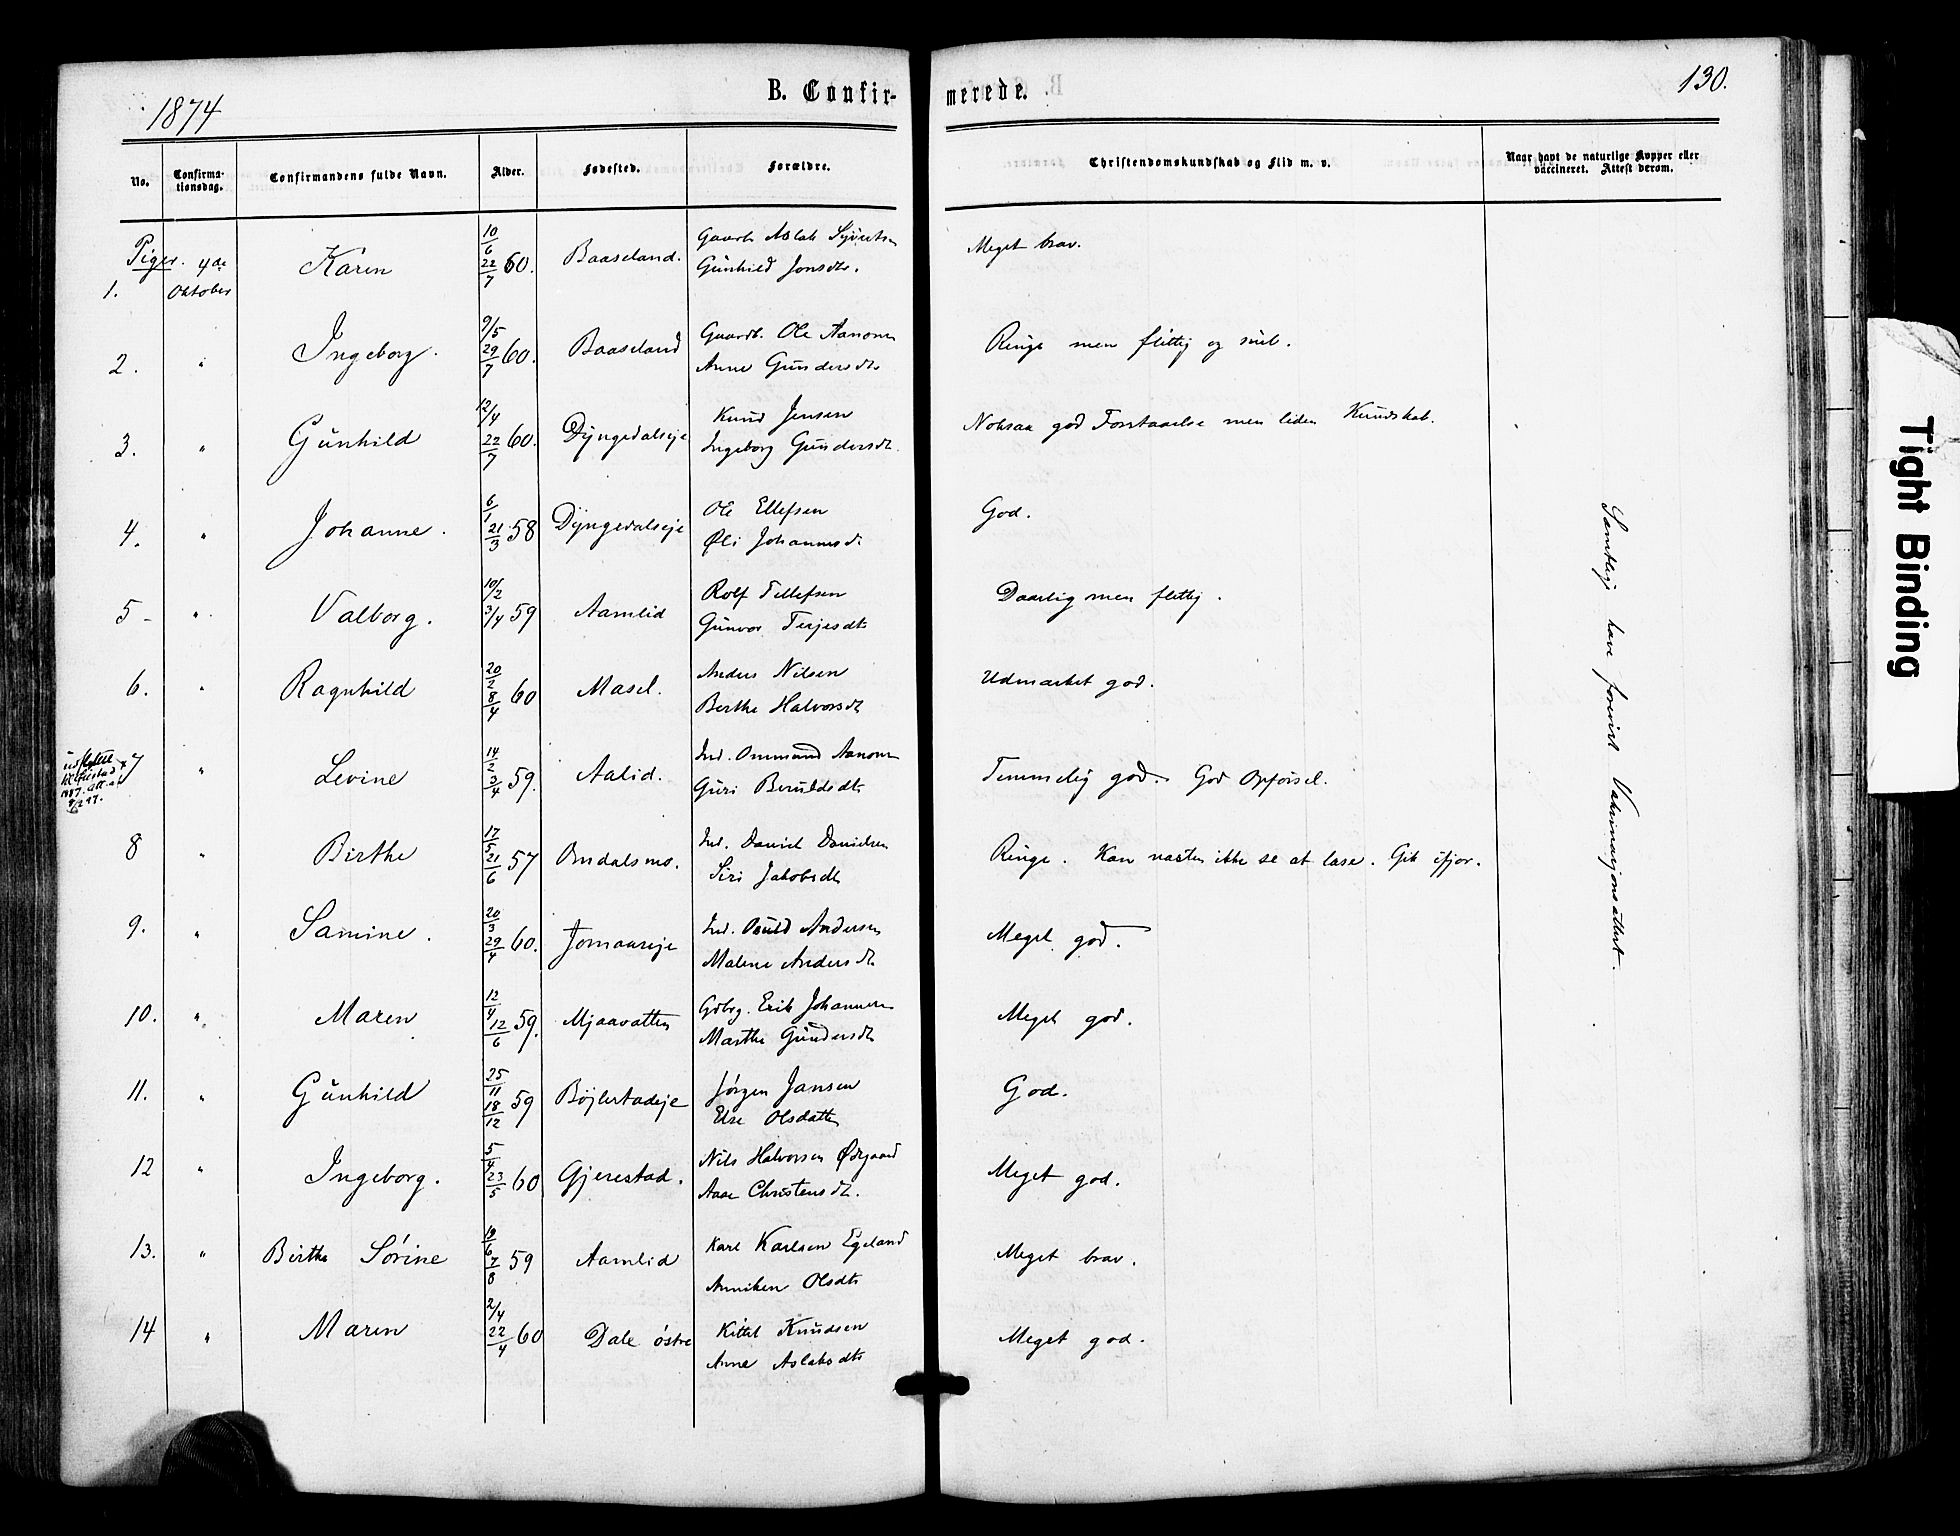 1874
B. Confir-
merede.
130.
No.
Confirma-
tionsdag.
Confirmandens fulde Navn.
Alder.
Fødested.
Forældre.
Christendomskundskab og Flid m. v.
Naar havt de naturlige Kopper eller
vaccineret. Attest derom.
Piger. 4de
1. Oktober Karen 10/6 22/7 60. Baaseland. Gaardb. Aslak Syvertsn
Gunhild Jonsdtr. Meget brav.
2. " Ingeborg. 9/5 29/7 60. Baaseland Gaardb. Ole Aanons
Anne Gundersdtr Ringe men flittig og snil.
3. " Gunhild 12/4 22/7 60. Dyngedalseje Knud Jensen
Ingeborg Gundersdtr. Noksaa god Forstaaelse men liden Kundskab.
4. " Johanne. 6/1 21/3 58 Dyngedalseje Ole Ellefsen
Øli Johannesd. God.
5 - " Valborg. 10/2 3/4 59 Aamlid Rolf Tellefsen
Gunvor Terjesdtr Daarlig men flittig.
6. " Ragnhild 20/2 8/4 60 Masel. Anders Nilsen
Berthe Halvorsdtr Udmærket god.
7 " Levine 14/2 3/4 59. Aalid. Ind. Ommund Aanons
Guri Beruldsdtr Temmelig god. God Opførsel.
8 " Birthe 17/5 21/6 57 Omdalsmo. Ind. Daniel Danielsen
Siri Jakobsdtr Ringe. Kan næsten ikke se at læse. Gik ifjor.
9. " Samine. 20/3 29/4 60. Jomaaseje Ind. Osuld Andersen
Malene Andersdtr Meget god.
10. " Maren 12/4 12/6 59. Mjaavatten Gdbrg. Erik Johannesen
Marthe Gundersdtr Meget god.
11. " Gunhild 25/11 18/12 59 Bøjlestadeje Jørgen Jansen
Else Olsdatter God.
12 " Ingeborg. 5/4 23/5 60 Gjerestad. Nils Halvorsen Ødegaard
Aase Christensdtr. Meget god.
13. " Birthe Sørine 19/6 7/8 59 Aamlid Karl Karlsen Egeland
Anniken Olsdtr Meget brav.
14 " Maren 2/4 22/4 60 Dale østre Kittel Knudsen
Anne Aslaksdtr Meget god.
Samtlig have forevist Vaksinasjonsattest.
Tight Binding